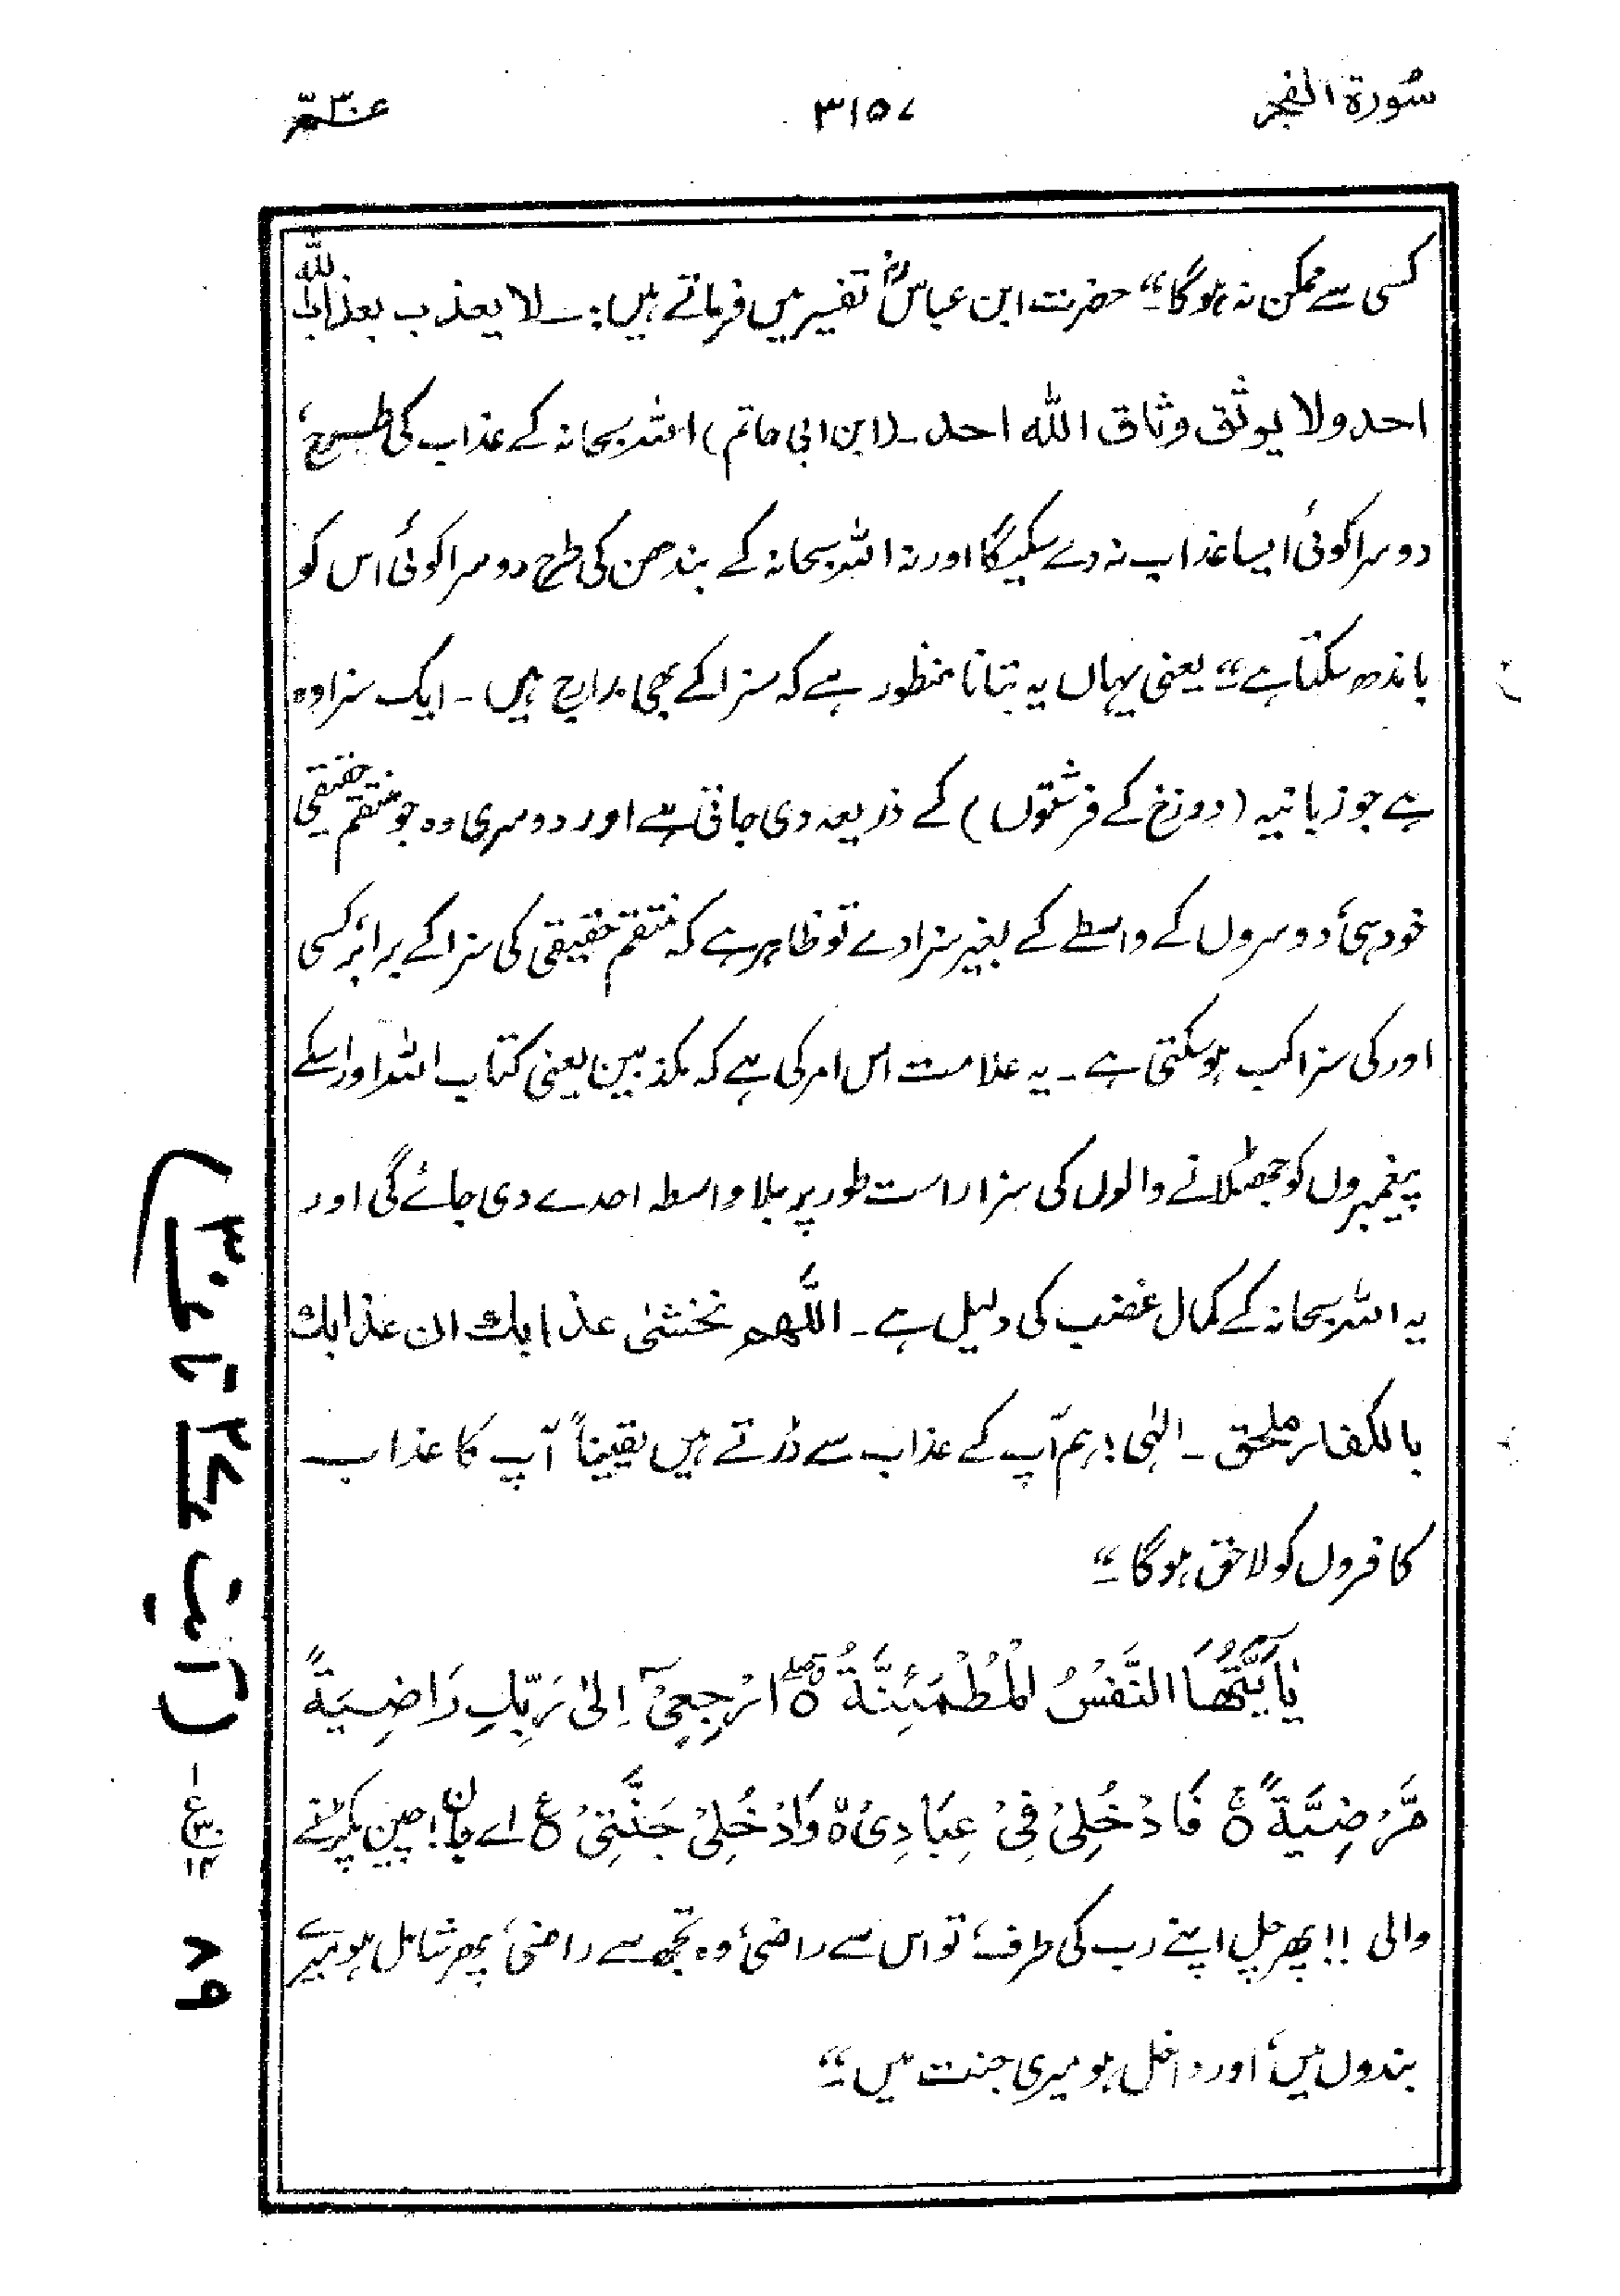 سُورۃ الفجر
۳۱۵۷
عمّ ۳۰
کسی سے ممکن نہ ہوگا“ حضرت ابن عباسؓ تفسیر میں فرماتے ہیں:۔ لا یعذب بعذاب اللّٰہ
احد ولا یوثق وثاق اللہ احد۔ (ابن ابی حاتم) اللہ سبحانہ کے عذاب کی طرح،
دوسرا کوئی ایسا عذاب نہ دے سکیگا اور نہ اللہ سبحانہ کے بندھن کی طرح دوسرا کوئی اس کو
باندھ سکتا ہے“ یعنی یہاں یہ بتانا منظور ہے کہ سزا کے بھی مدارج ہیں۔ ایک سزا وہ
ہے جو زبانیہ (دوزخ کے فرشتوں) کے ذریعہ دی جاتی ہے اور دوسری وہ جو منتقم حقیقی
خود ہی، دوسروں کے واسطے کے بغیر سزا دے تو ظاہر ہے کہ منتقم حقیقی کی سزا کے برابر، کسی
اور کی سزا کب ہوسکتی ہے۔ یہ علامت اس امر کی ہے کہ مکذبین یعنی کتاب اللہ اور اسکے
پیغمبروں کو جھٹلانے والوں کی سزا راست طور پر بلا واسطہ احدے دی جائے گی اور
یہ اللہ سبحانہ کے کمال غضب کی دلیل ہے۔ اللّٰھم نخشیٰ عذابك ان عذابك
بالكفار ملحق۔ الٰہی! ہم آپ کے عذاب سے ڈرتے ہیں یقیناً آپ کا عذاب
کافروں کو لاحق ہوگا“
یٰۤاَیَّتُهَا النَّفْسُ الْمُطْمَىِٕنَّةُ ۝ ارْجِعِیْۤ اِلٰی رَبِّكِ رَاضِیَةً
مَّرْضِیَّةً ۝ فَادْخُلِیْ فِیْ عِبٰدِیْ ۝ وَادْخُلِیْ جَنَّتِیْ ۝ اے جان! چین پکڑنے
والی!! پھر چل اپنے رب کی طرف، تو اس سے راضی، وہ تجھ سے راضی، پھر شامل ہو میرے
بندوں میں، اور داخل ہو میری جنت میں“
(آیت ۲۷ تا ۳۰)
۱
ع ۳۰
۱۴
۸۹